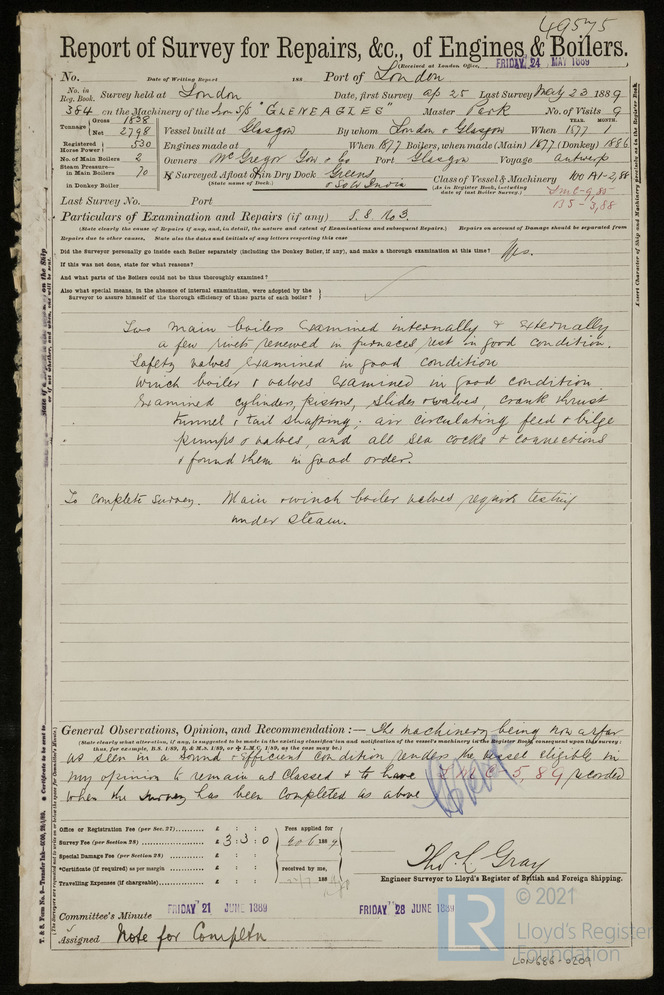 49575
Report of Survey for Repairs, &c., of Engines & Boilers.
(Received at London Office, FRIDAY 24 MAY 1889
No. Date of Writing Report 188 Port of London
No. in Reg. Book. Survey held at London Date, first Survey ap 25 Last Survey May 23 1889
384 on the Machinery of the Iron S/S "GLENEAGLES" Master Park No. of Visits 9
Tonnage Gross 1838 Net 2798 Vessel built at Glasgow By whom London & Glasgow When YEAR. 1877 MONTH. 1
Registered Horse Power 530 Engines made at " When 1877 Boilers, when made (Main) 1877 (Donkey) 1886
No. of Main Boilers 2 Owners McGregor Gow & Co Port Glasgow Voyage Antwerp
Steam Pressure— in Main Boilers 70 Surveyed Afloat or in Dry Dock Greens Class of Vessel & Machinery 100 A1-2,88
in Donkey Boiler (State name of Dock.) & So W India (As in Register Book, including date of last Boiler Survey.) LMC-9,85-
BS-3,88
Last Survey No. Port
Particulars of Examination and Repairs (if any) S.S. No 3.
(State clearly the cause of Repairs if any, and, in detail, the nature and extent of Examinations and subsequent Repairs.) Repairs on account of Damage should be separated from
Repairs due to other causes, State also the dates and initials of any letters respecting this case
Did the Surveyor personally go inside each Boiler separately (including the Donkey Boiler, if any), and make a thorough examination at this time? Yes.
If this was not done, state for what reasons?
And what parts of the Boilers could not be thus thoroughly examined?
Also what special means, in the absence of internal examination, were adopted by the
Surveyor to assure himself of the thorough efficiency of those parts of each boiler?
Two main boilers examined internally & externally
a few rivets renewed in furnaces, rest in good condition.
Safety valves examined in good condition
Winch boiler & valves examined in good condition.
Examined cylinders, pistons, slides & valves, crank thrust
tunnel & tail shafting; air circulating feed & bilge
pumps & valves, and all sea cocks & connections
& found them in good order.
To complete survey. Main & winch boiler valves require testing
under steam.
General Observations, Opinion, and Recommendation:— The machinery being now as far
(State clearly what alteration, if any, is suggested to be made in the existing classification and notification of the vessel's machinery in the Register Book, consequent upon this survey:
thus, for example, B.S. 1/89, B. & M.s. 1/89, or L.M.C. 1/89, as the case may be.)
as seen in a sound & efficient condition renders the vessel eligible in
my opinion to remain as classed & to have LMC 5,89 recorded
when the survey has been completed as above
Office or Registration Fee (per Sec. 27) £ : :
Survey Fee (per Section 28) £ 3 : 3 : 0
Special Damage Fee (per Section 28) £ : :
*Certificate (if required) as per margin £ : :
Travelling Expenses (if chargeable) £ : :
Fees applied for
20/6 1889
received by me,
188
Thos. L. Gray
Engineer Surveyor to Lloyd's Register of British and Foreign Shipping.
Committee's Minute FRIDAY 21 JUNE 1889 FRIDAY 28 JUNE 1889
Assigned Note for Completn
© 2021
LR
Lloyd's Register
Foundation
LON686-0209